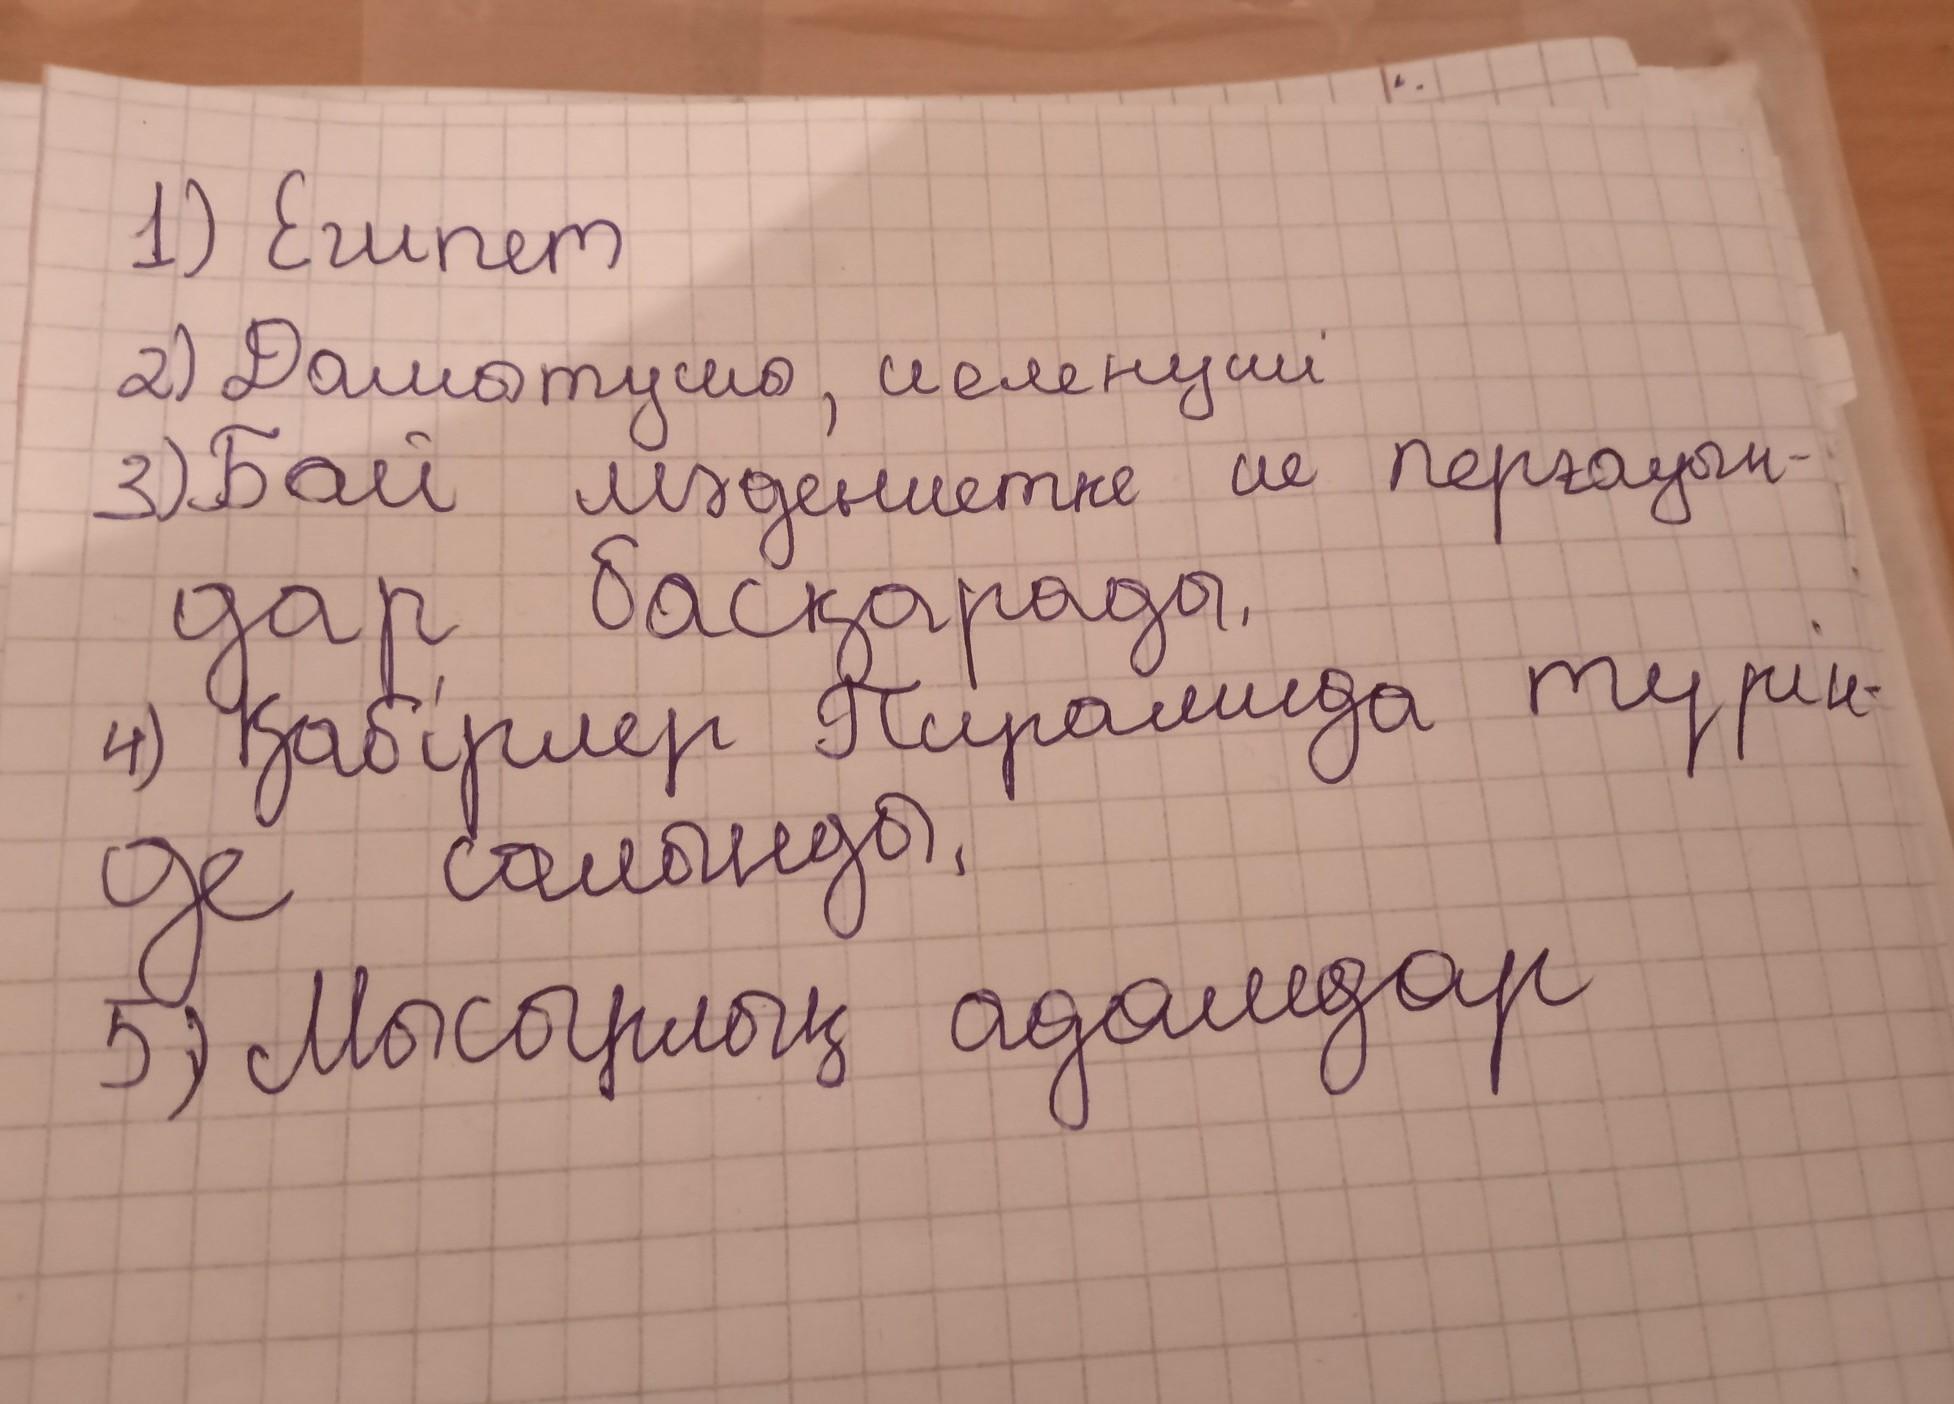 1) Египет
2) Дамытушы, иеленуші
3) Бай мәдениетке ие перғауын-
дар басқарады.
4) Қабірлер Пирамида түрін-
де салынды.
5) Мысырлық адамдар